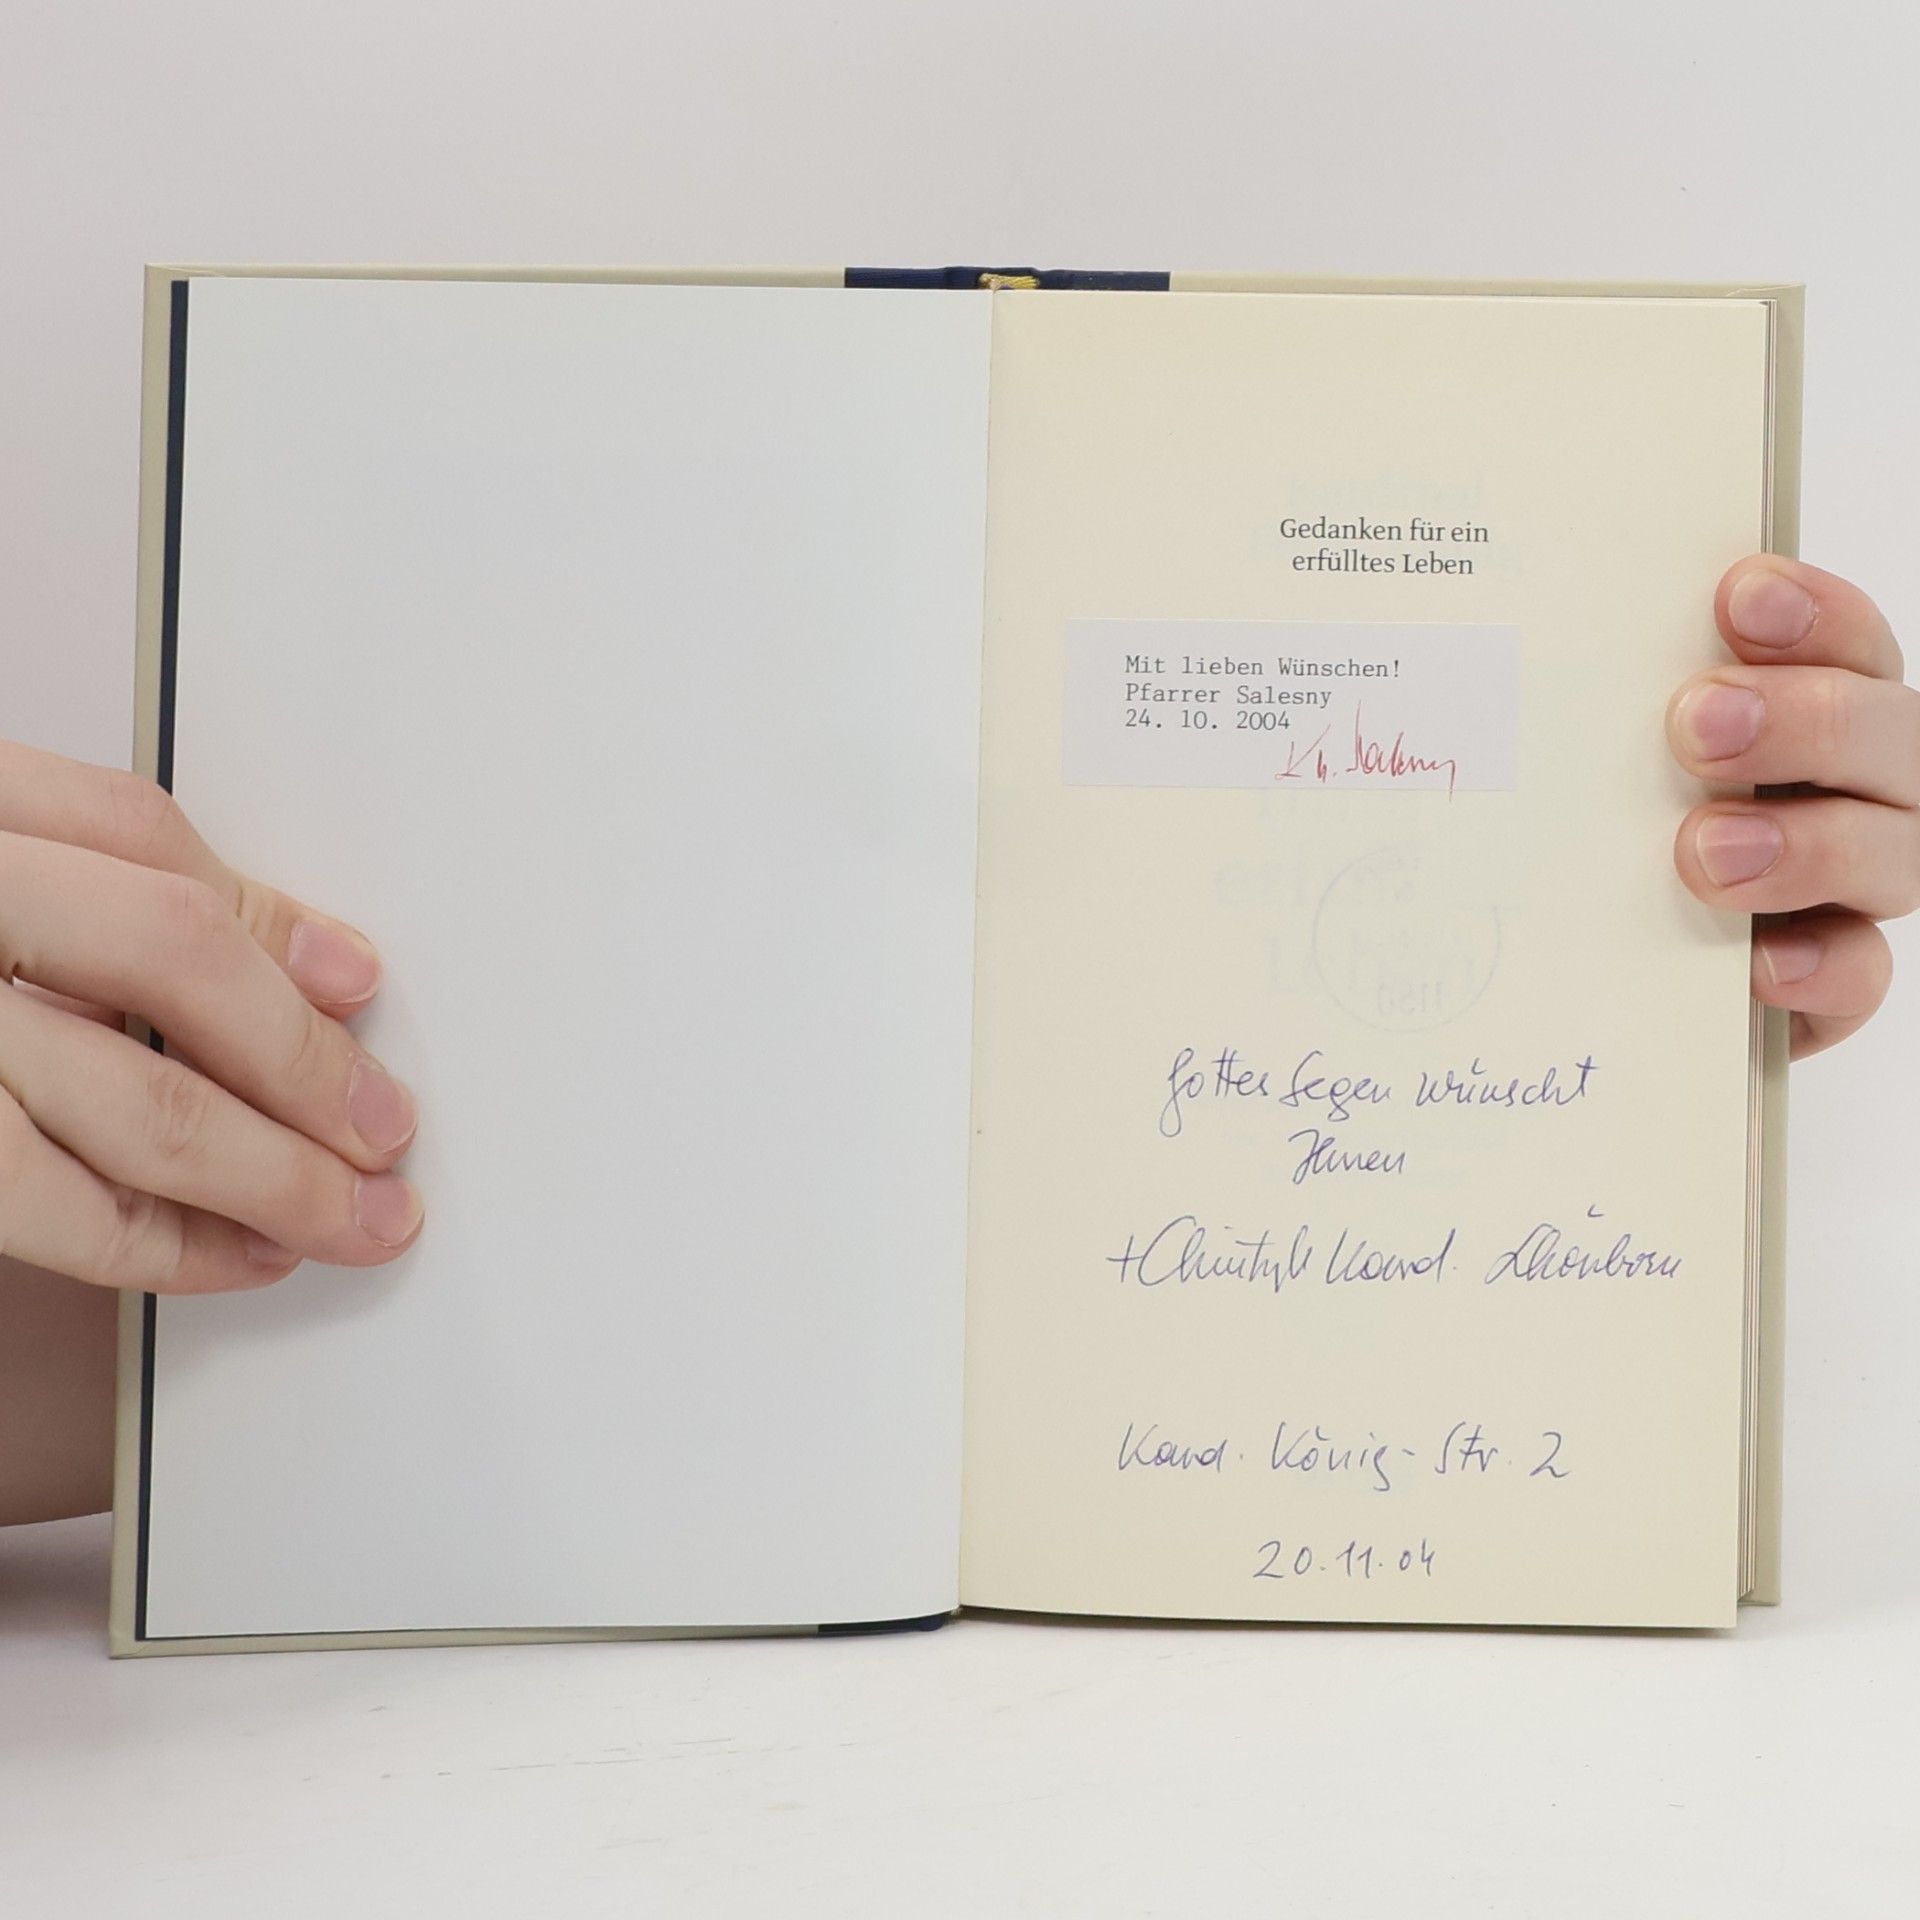 Gedanken für ein
erfülltes Leben
Mit lieben Wünschen!
Pfarrer Salesny
24. 10. 2004
Salesny
Gottes Segen wünscht
Ihnen
+Christoph Kard. Schönborn
Kard. König-Str. 2
20.11.04